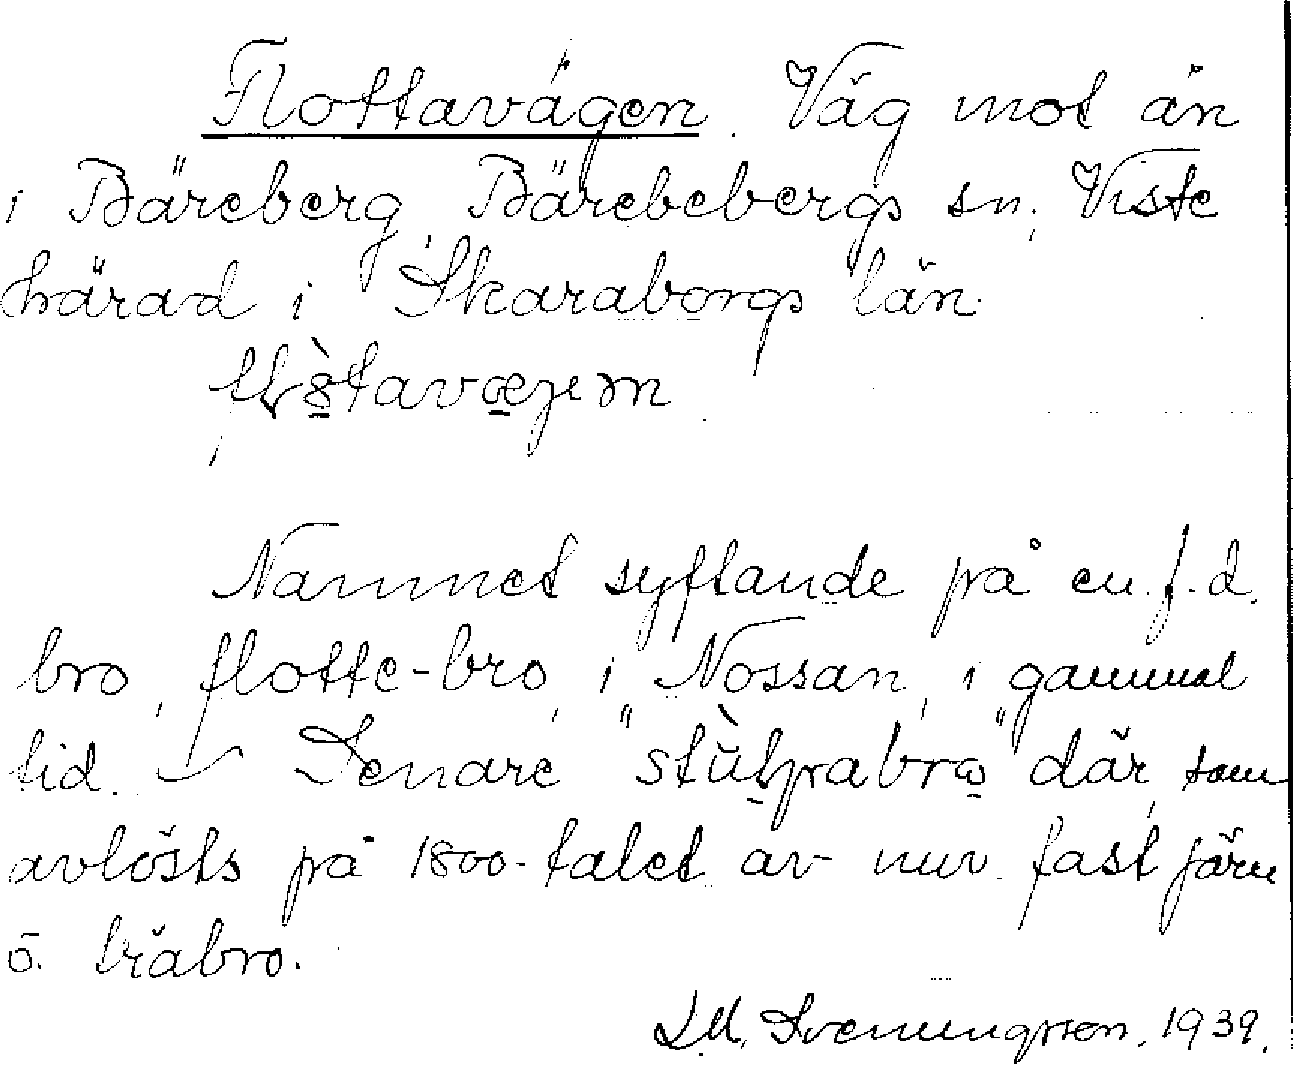 Flottavägen. Väg mot ån
i Bäreberg, Bärebebergs sn, Viste
härad i Skaraborgs län.
Namnet syftande på en f.d.
bro, flotte-bro, i Nossan, i gammal
tid. Senare "stùlpabro" där, som
avlösts på 1800-talet av nuv. fast järn
o. träbro.
Svenungsson. 1939.